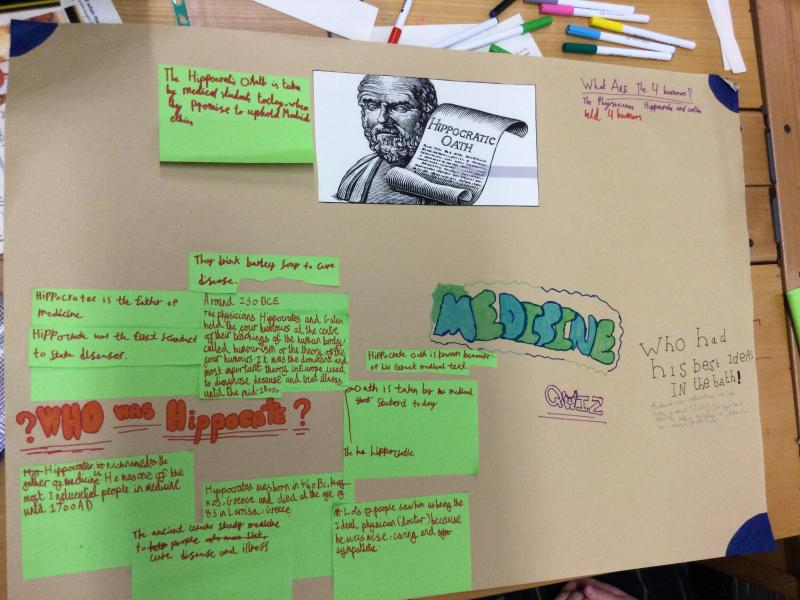 The Hippocratic Oath is taken
by medical students today, when
they promise to uphold
ethics
HIPPOCRATIC
OATH
What ARE The 4 humours?
The Physicians Hippocrates and
held 4 humors
They drink barley soup to cure
disease.
Hippocrates is the father of
medicine
Hippocrate was the first
to diseases.
Around 250 BCE
The physicians Hippocrates and Galen
held the four humours at the centre
of their teachings of the human body
called humourism or the theory of the
four humours. It was the dominant and
most important theory in Europe used
to diagnose desease and treat illness
until the mid-1800s
MEDISINE
Who had
his best Ideas
IN the bath!
QWIZ
Hippocrate Oath is known because
of his Earliest medical text.
Oath is taken by medical
student today
The he hippocratic
?WHO WAS Hippocrate?
Hippocrates is Nicknamed the
father of medicine. He was one of the
most Influential people in medicine
until 1700 AD
Hippocrates was born in 460 Bc,
Kos, Greece and died at the age of
85 in Larrisa, Greece.
The ancient study medicine
to people
cure disease and illness
Lots of people saw him as being the
Ideal physician (doctor) because
he was wise, caring and
sympathetic.